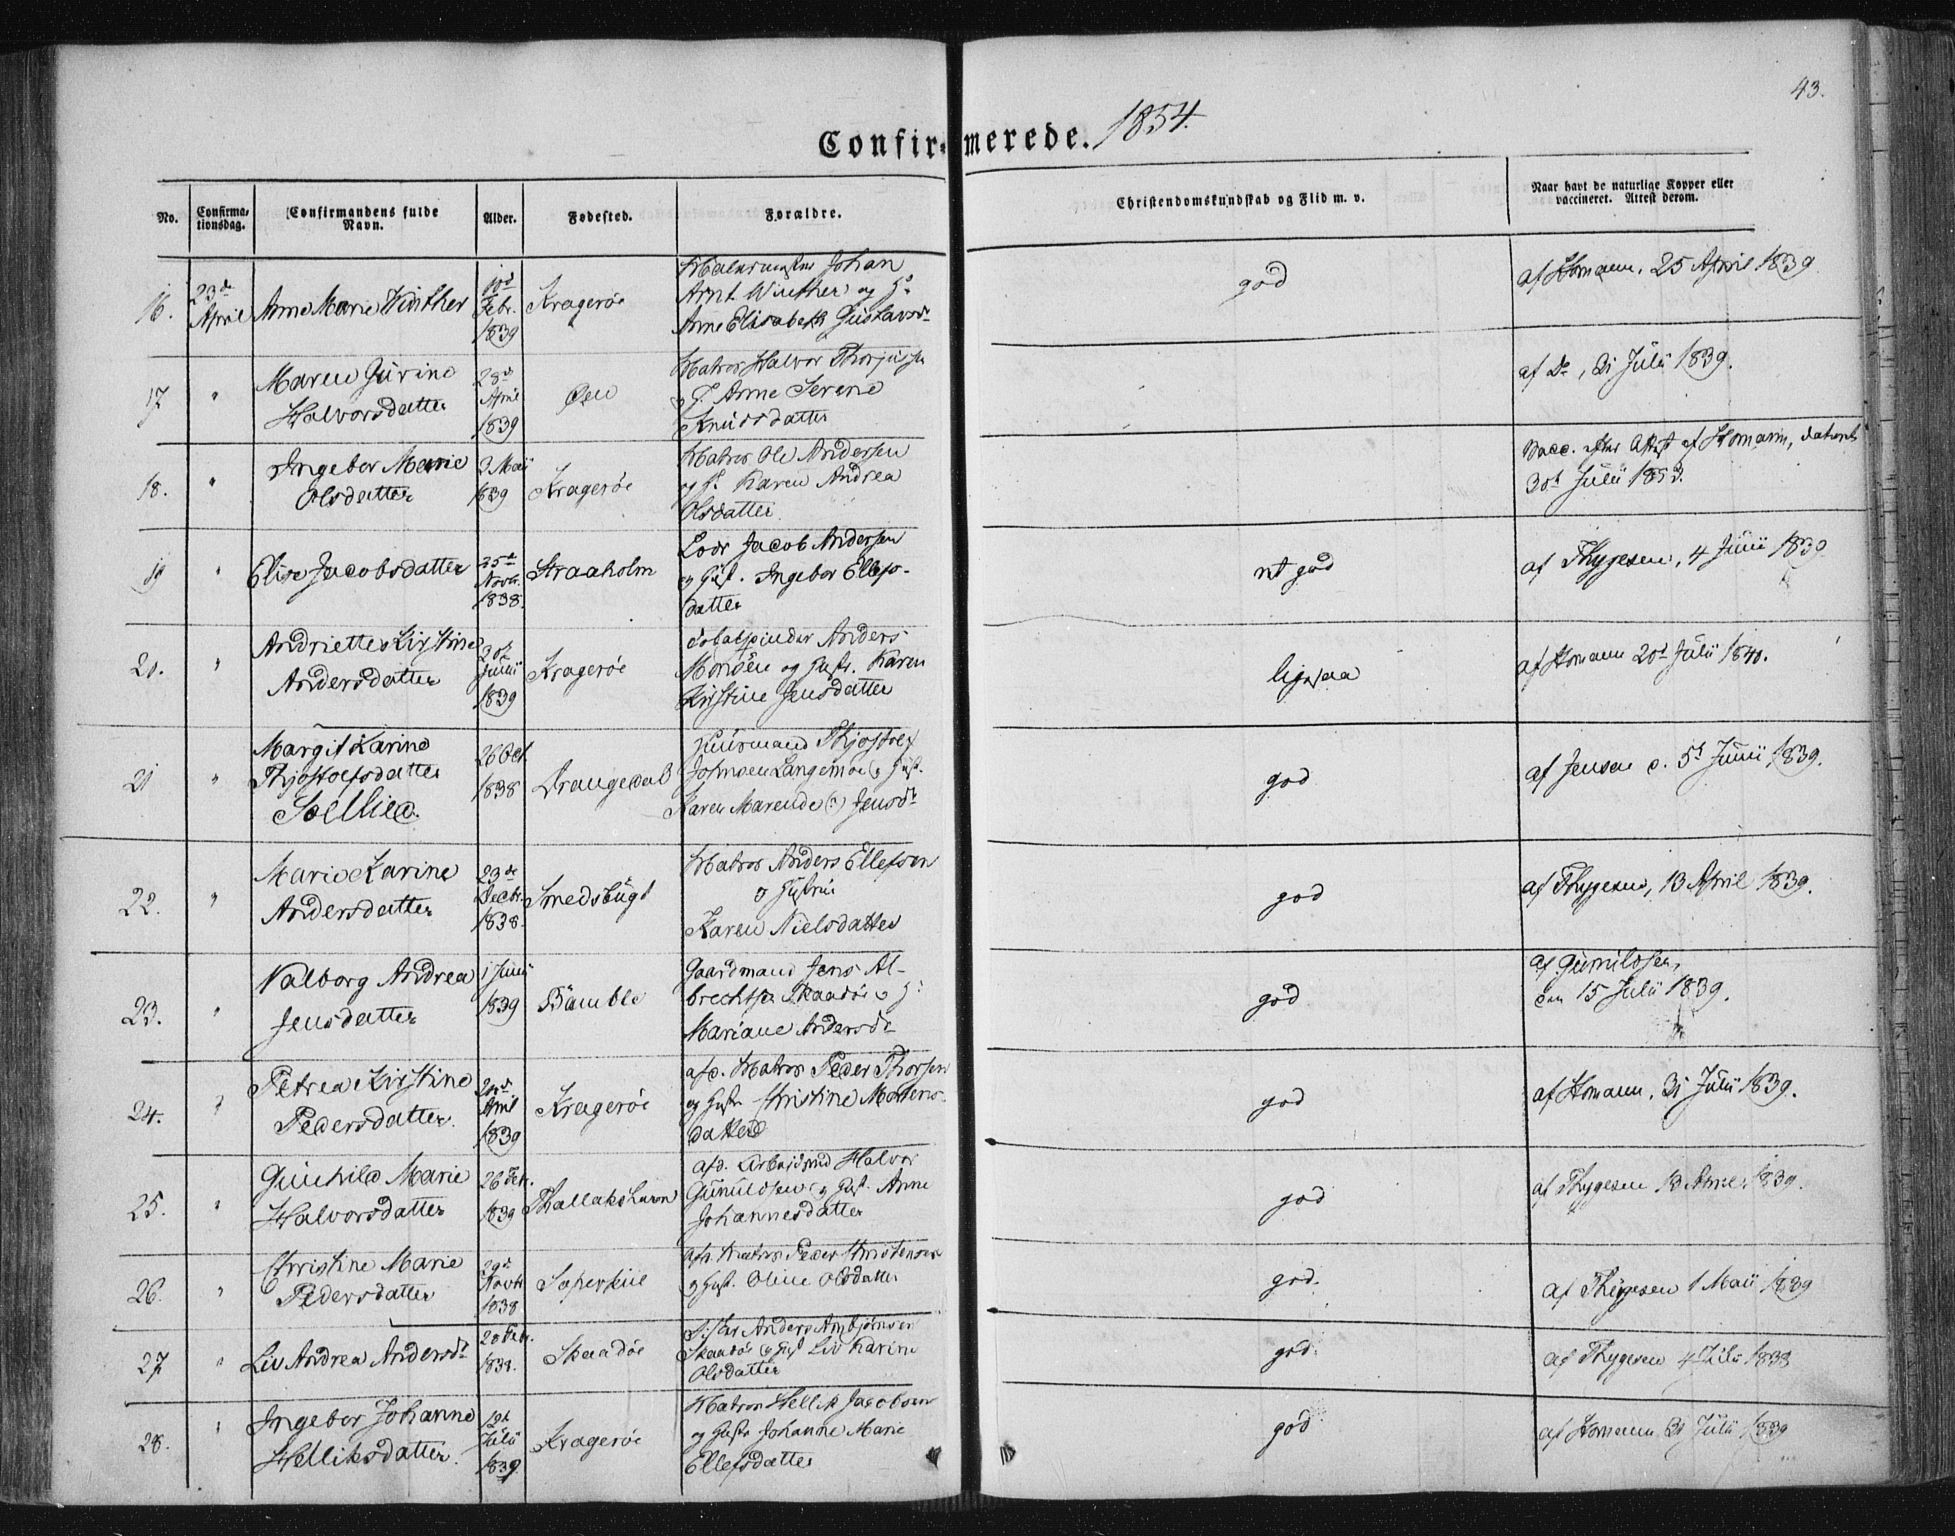 43.
Confirmerede. 1854.
No.
Confirmationsdag.
Confirmandens fulde Navn.
Alder.
Fødested.
Forældre.
Christendomskundskab og Flid m. v.
Naar havt de naturlige Kopper eller vaccineret. Attest derom.
16.
23de April
Anne Marie Winther
10d Febr. 1839
Kragerøe
Johan
Arnt Winther og H.
Anne Elisabeth Gustavsd.
god
af Homann, 25 April 1839
17
"
Maren Gurine
Halvorsdatter
28d April 1839
Øen
Matros Halvor
Anne Serene
Knudsdatter
af Do, 31 Julii 1839.
18.
"
Ingebor Marie
Olsdatter
2 Maii 1839
Kragerøe
Matros Ole Andersen
og H. Karen Andrea
Olsdatter
Vacc. efter Attest af Homann, dateret
30t Julii 1853.
19
"
Elise Jacobsdatter
25d Novbr. 1838.
Straaholm
Lods Jacob Andersen
og Hust. Ingebor Ellefs-
datter
ret god
af Thygesen, 4 Junii 1839
20.
"
Andriette Kirstine
Andersdatter
Junii 1839
Kragerøe
Anders
Monsen og Hustr. Karen
Kirstine Jensdatter
ligesaa
af Homann 20d Julii 1840.
21
"
Margit Karine
Thjostolfsdatter
26 Oct. 1838
Drangedal
Huusmand Thjostolf
Johnsen Langemoe og Hust.
Karen Marende (?) Jensdt
god
af Jensen d. 5t Junii 1839.
22.
"
Marie Karine
Andersdatter
23de Decbr. 1838.
Smedsbugt
Matros Anders Ellefsen
og Hustrue
Karen Nielsdatter
god
af Thygesen, 13 April 1839.
23.
"
Valborg Andrea
Jensdatter
1 Junii 1839
Bamble
Gaardmand Jens Al-
brechtsen Skaadøe og H.
Mariane Andersdt
god
af Gunnildsen,
den 15 Julii 1839.
24.
"
Petrea Kirstine
Pedersdatter.
April 1839
Kragerøe
afd. Matros Peder Thorsen
og Hustr Christine Mortens-
datter
god
af Homann, 31 Julii 1839.
25.
"
Gunhild Marie
Halvorsdatter
26 Febr. 1839
Thallakshavn
afd. Arbeidsmd Halvor
Gunuldsen og Hust. Anne
Johannesdatter
god
af Thygesen 13 April 1839.
26.
"
Christine Marie
Pedersdatter
29d Novbr 1838
afd. Matros Peder Christensen
og Hust. Oline Olsdatter
god.
af Thygesen 1 Maii 1839
27
"
Liv Andrea Andersdt
Febr.
Skaadøe
Anders Ambjørnsen
Skaadøe og Hust Liv Karine
Olsdatter
god.
af Thygesen 4 Julii
28.
"
Ingebor Johanne
Helliksdatter.
19d Julii 1839
Kragerøe
Matros Hellik Jacobsen
og Hustr Johanne Marie
Ellefsdatter
god
af Homann 31 Julii 1839